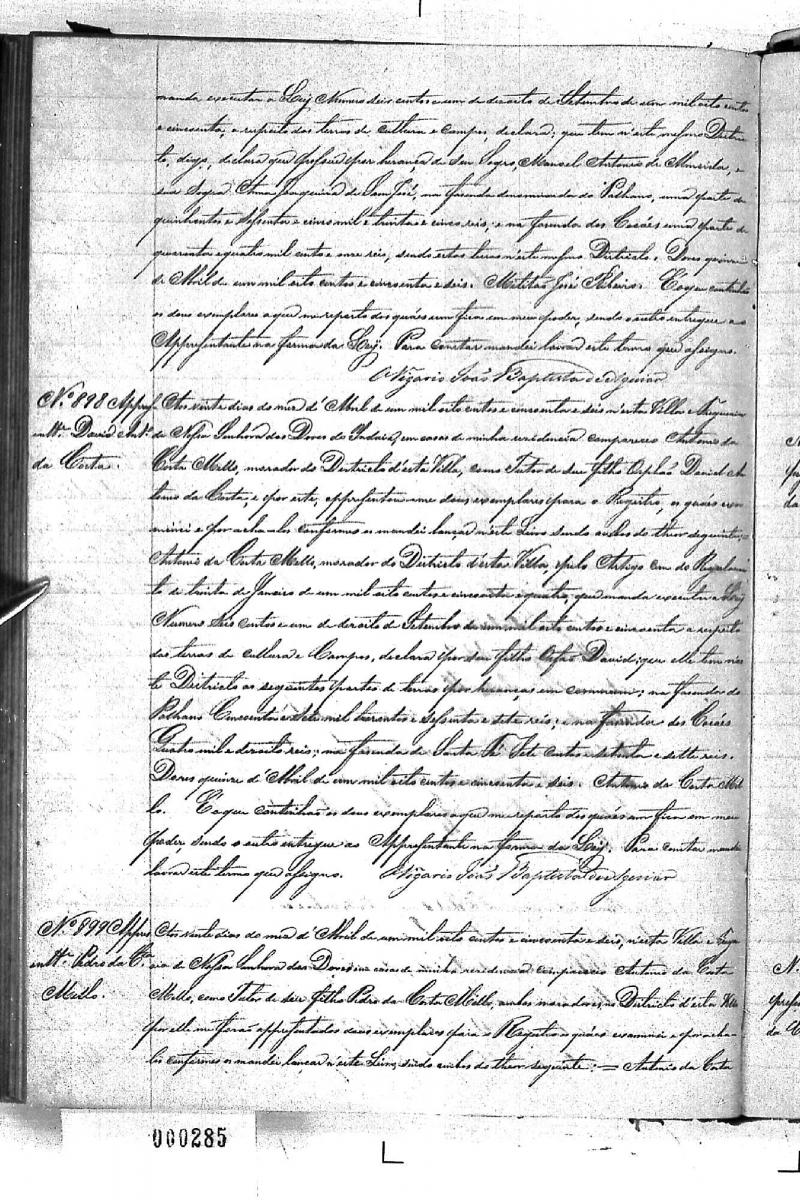 manda executar a Ley Numero seis centos e um de desoito de Setembro de um mil oito centos
e cincoenta, a respeito das terras de cultura e campos, declara; que tem n'este mesmo Distric-
to, digo, declara que possue por herança de seu Sogro, Manoel Antonio de Almeida, e
sua Sogra Anna Joaquina de Sam José, na fazenda denominada do Palhano, uma parte de
quinhentos e sessenta e cinco mil e trinta e cinco reis, e na fazenda dos Cocáes uma parte de
quarenta e quatro mil cento e onze reis, sendo estas terras n'este mesmo Districto. Dores quinze
de Abril de um mil oito centos e cincoenta e seis. Militão José Ribeiro. E o que continhão
os dous exemplares a que me reporto dos quáes um fica em meu poder, sendo o outro entregue ao
Appresentante na forma da Ley. Para constar mandei lavrar este termo que assigno.
O Vigario João Baptista de
Nº 898 Appres-
entte David Ant.
da Costa.
Aos vinte dias do mez d'Abril de um mil oito centos e cincoenta e seis n'esta Villa e Freguezia
de Nossa Senhora das Dores do Indaiá, em casas de minha residencia compareceo Antonio da
Costa Mello, morador do Districto d'esta Villa, como Tutor de seu filho Orphão David An-
tonio da Costa, e por este, appresentou-me dous exemplares para o Registro, os quáes exa-
minei e por acha-los conformes os mandei lançar n'este Livro sendo ambos do theor seguinte; =
Antonio da Costa Mello, morador do Districto d'esta Villa, e pelo Artigo cem do Regulamen-
to de trinta de Janeiro de um mil oito centos e cincoenta e quatro, que manda executar a Ley
Numero Seis centos e um de desoito de Setembro de um mil oito centos e cincoenta a respeito
das terras de cultura e Campos, declara por seu filho Orfão David; que elle tem n'es-
te Districto as seguintes partes de terras por herança em commum; na fazenda do
Palhano Cincoenta e sete mil trezentos e sessenta e sete reis; e na fazenda dos Cocáes
Quatro mil e desoito reis; na fazenda de Santa Fé Sete centos e setenta e sette reis.
Dores quinze de Abril de um mil oito centos e cincoenta e seis. Antonio da Costa Mel-
lo. E o que continhão os dous exemplares a que me reporto dos quáes um fica em meu
poder sendo o outro entregue ao Appresentante na forma da Ley. Para constar mandei
lavrar este termo que assigno. O Vigario João Baptista de
Nº 899 Appres-
entte Pedro da Cta
Mello.
Aos vinte dias do mez d'Abril de um mil oito centos e cincoenta e seis, n'esta Villa e Fregue-
zia de Nossa Senhora das Dores em casas de minha residencia compareceo Antonio da Costa
Mello, como Tutor de seu filho Pedro da Costa Mello, ambos moradores, no Districto d'esta Villa
por elle me forão appresentados dous exemplares para o Registro os quáes examinei e por acha-
los conformes os mandei lançar n'este Livro, sendo ambos do theor seguinte: = Antonio da Costa
000285